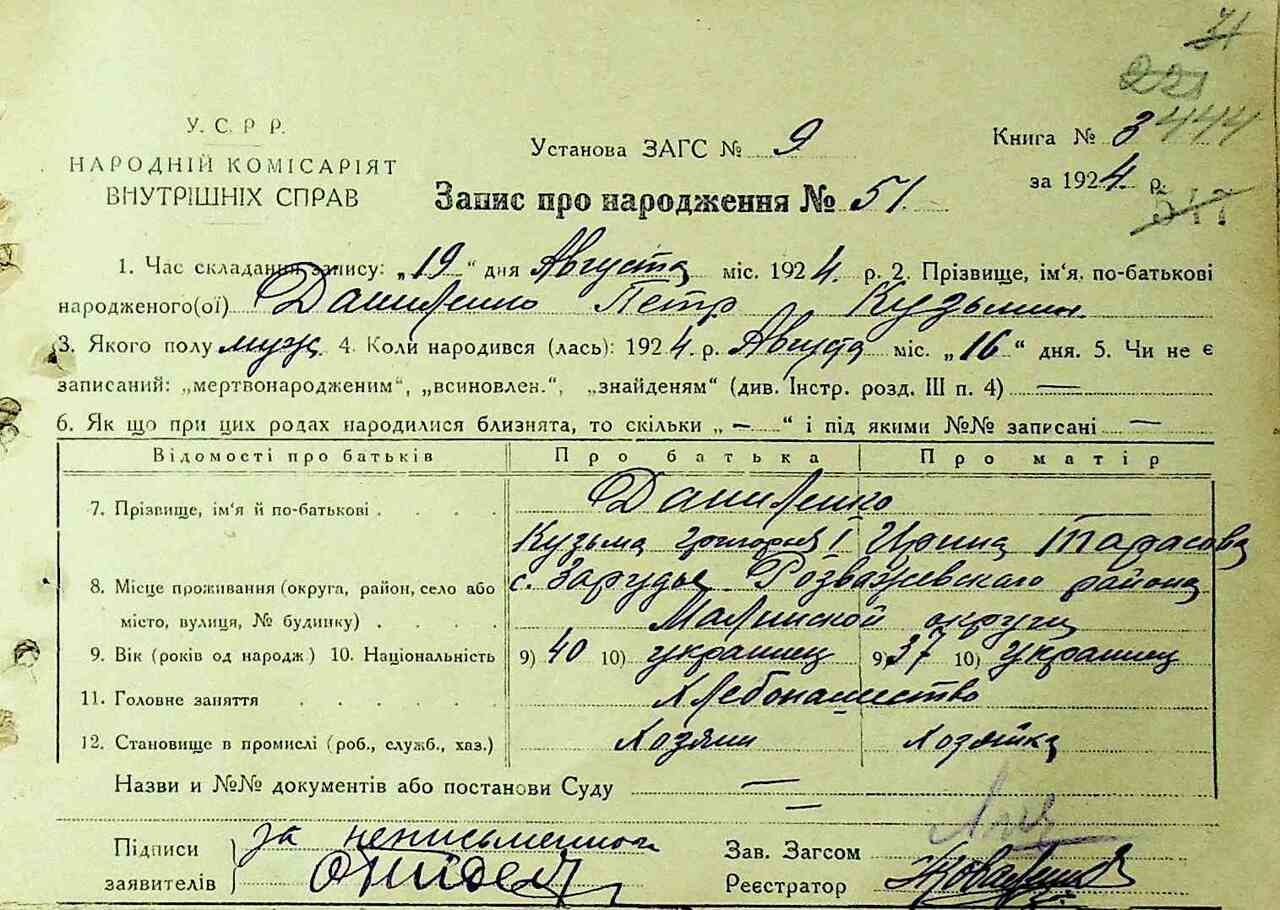 71
221
444
У. С. Р Р.
НАРОДНІЙ КОМІСАРІЯТ
ВНУТРІШНІХ СПРАВ
Установа ЗАГС № 9
Книга № 3
за 1924 р.
547
Запис про народження № 51.
1. Час складання запису: „19“ дня Августа міс. 1924 р. 2. Прізвище, ім'я, по-батькові
народженого(ої) Даниленко Петр Кузьмин
3. Якого полу муж 4. Коли народився (лась): 1924 р. Августа міс. „16“ дня. 5. Чи не є
записаний: „мертвонародженим“, „всиновлен.“, „знайденям“ (див. Інстр. розд. III п. 4) —
6. Як що при цих родах народилися близнята, то скільки „—“ і під якими №№ записані —
Відомості про батьків Про батька Про матір
7. Прізвище, ім'я й по-батькові . . . . Даниленко
Кузьма Ирина Тарасова
8. Місце проживання (округа, район, село або с. Зарудье Розважевскаго района
місто, вулиця, № будинку) . . . . Малинской округи
9. Вік (років од народж) 10. Національність 9) 40 10) украинец 9) 37 10) украинец
11. Головне заняття . . . . . . Хлебопашество
12. Становище в промислі (роб., служб., хаз.) Хозяин Хозяйка
Назви и №№ документів або постанови Суду —
—
Підписи за неписьменного
заявителів
Зав. Загсом
Реєстратор